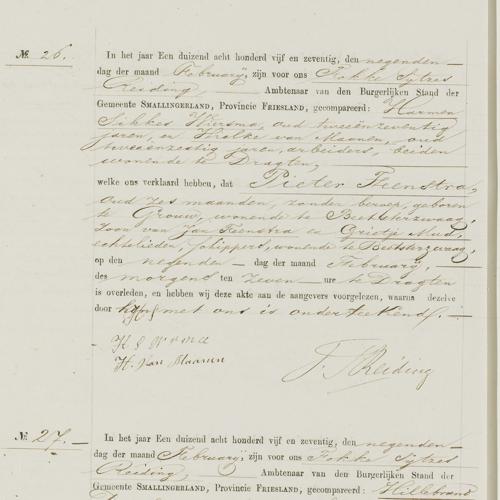 № 26.
In het jaar Een duizend acht honderd vijf en zeventig, den negenden
dag der maand Februarij, zijn voor ons Fokke Sytzes
Reiding Ambtenaar van den Burgerlijken Stand der
Gemeente SMALLINGERLAND, Provincie FRIESLAND, gecompareerd: Harmen
Sikkes Wiersma, oud tweeënzeventig
jaren, en Hielke van Maanen, oud
tweeënzestig jaren, arbeiders, beiden
wonende te Dragten,
welke ons verklaard hebben, dat Pieter Feenstra,
oud zes maanden, zonder beroep, geboren
te Grouw, wonende te Beetsterzwaag,
zoon van Jan Feenstra en Grietje Mud,
echtelieden, schippers, wonende te Beetsterzwaag,
op den negenden dag der maand Februarij,
des morgens ten zeven ure te Dragten
is overleden, en hebben wij deze akte aan de aangevers voorgelezen, waarna dezelve
door hen met ons is onderteekend.
H S W
H. van Maanen
F. S. Reiding
№ 27.
In het jaar Een duizend acht honderd vijf en zeventig, den negenden
dag der maand Februarij, zijn voor ons Fokke Sytzes
Reiding, Ambtenaar van den Burgerlijken Stand der
Gemeente SMALLINGERLAND, Provincie FRIESLAND, gecompareerd: Hillebrand